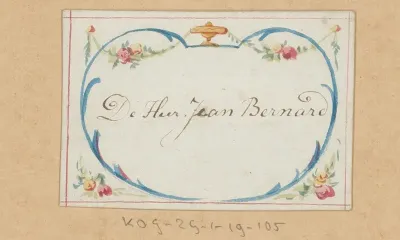 De Heer Jean Bernard
KOG-ZG-1-19-105